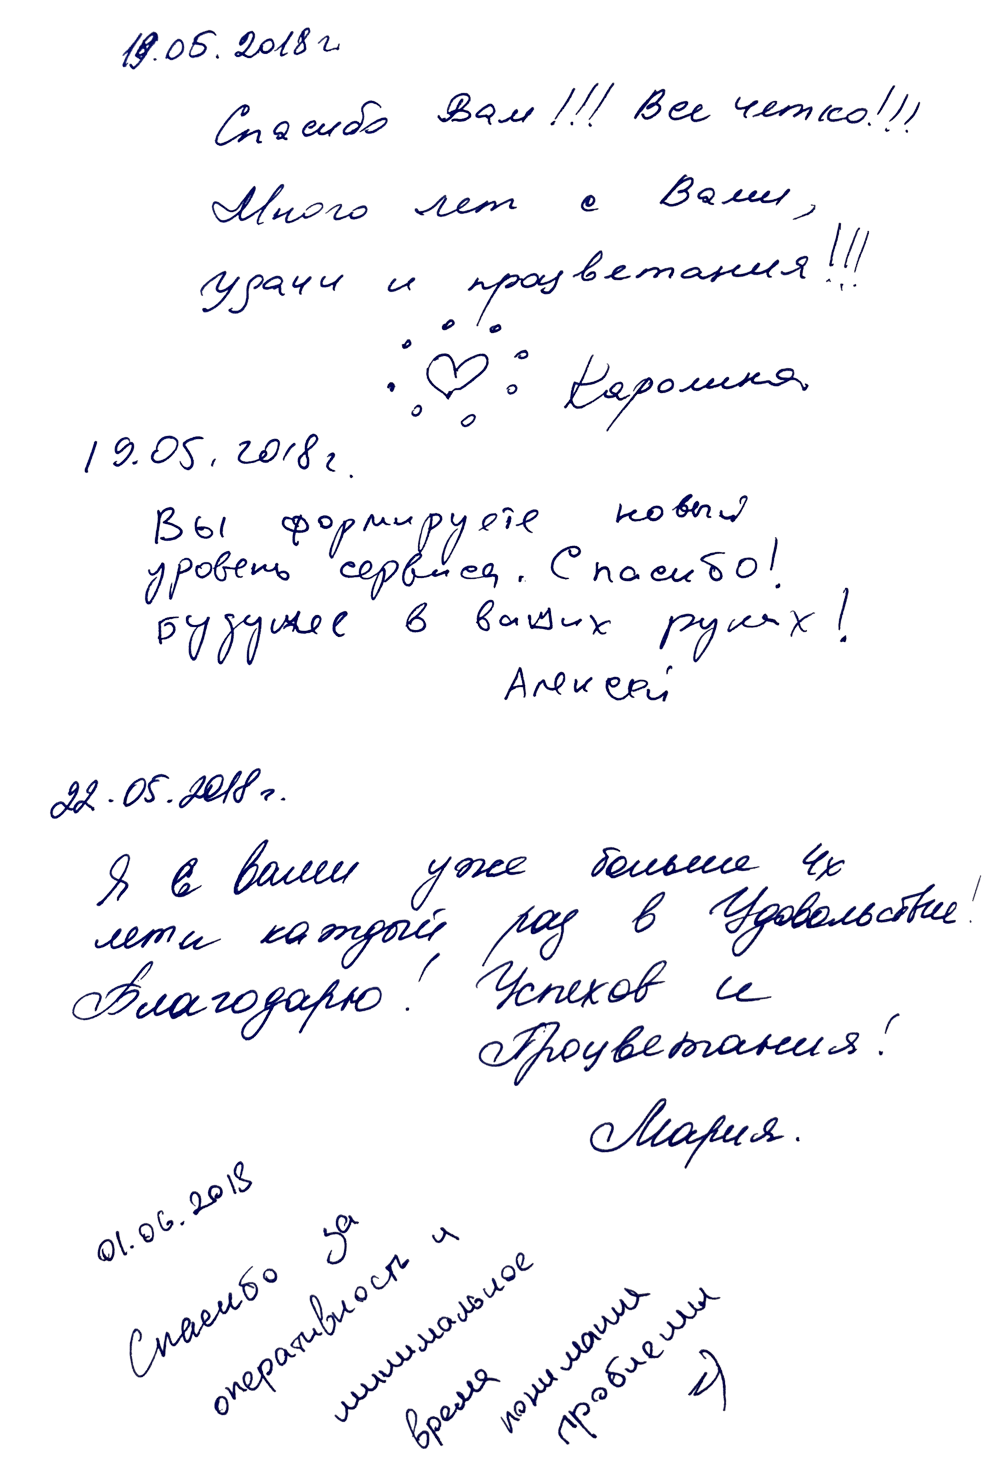 19.05.2018 г.
Спасибо Вам!!! Все четко!!!
Много лет с Вами,
удачи и процветания!!!
Каролина
19.05.2018 г.
Вы формируете новый
уровень сервиса. Спасибо!
Будущее в ваших руках!
Алексей
22.05.2018 г.
Я с вами уже больше 4х
лет и каждый раз в Удовольствие!
Благодарю! Успехов и
Процветания!
Мария.
01.06.2018
Спасибо за
оперативность и
минимальное
время
понимания
проблемы
:)